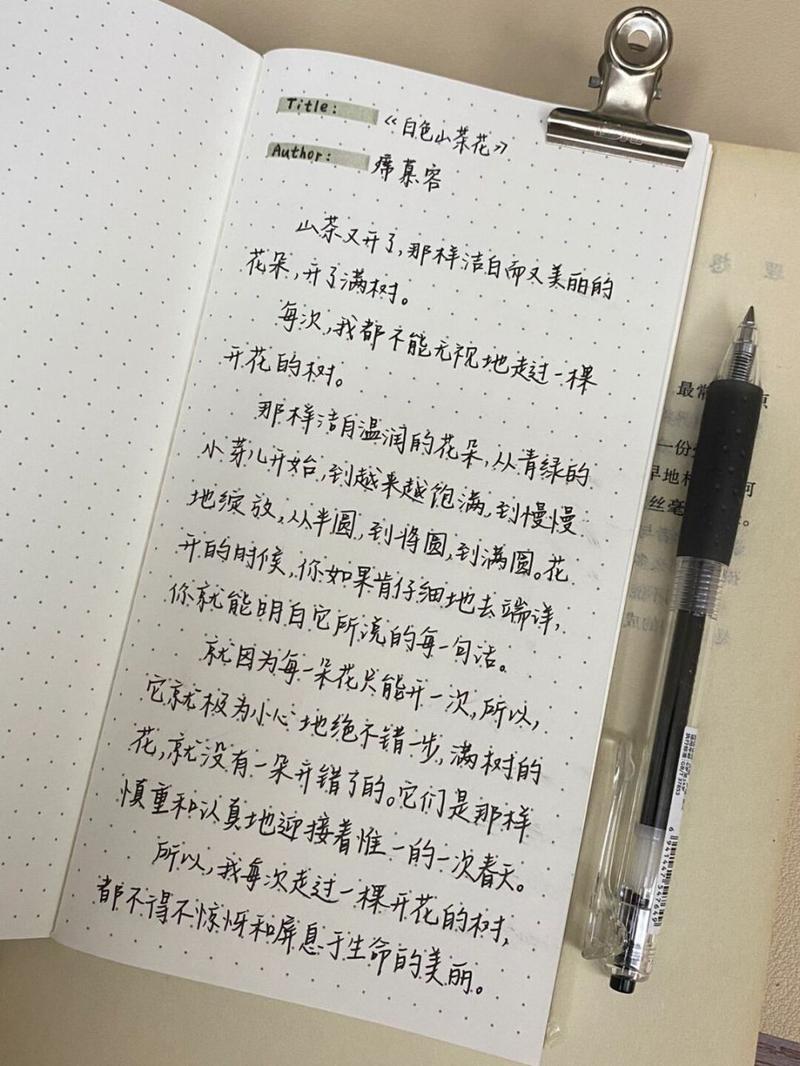 Title:
《白色山茶花》
Author:
席慕容
山茶又开了,那样洁白而又美丽的
花朵,开了满树。
每次,我都不能无视地走过一棵
开花的树。
那样洁白温润的花朵,从青绿的
小芽儿开始,到越来越饱满,到慢慢
地绽放,从半圆,到将圆,到满圆。花
开的时候,你如果肯仔细地去端详,
你就能明白它所说的每一句话。
就因为每一朵花只能开一次,所以,
它就极为小心地绝不错一步,满树的
花,就没有一朵开错了的。它们是那样
慎重和认真地迎接着惟一的一次春天。
所以,我每次走过一棵开花的树,
都不得不惊讶和屏息于生命的美丽。
最常
一份
早地
可
丝毫